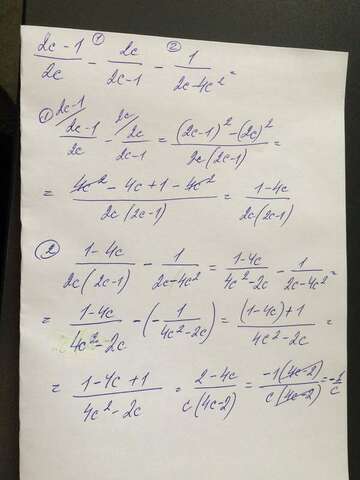 (2c-1)/(2c) -① (2c)/(2c-1) -② 1/(2c-4c²) =
① (2c-1)/(2c) ^(2c-1) - (2c)/(2c-1) ^(2c) = ((2c-1)² - (2c)²)/(2c(2c-1)) =
= (4c² - 4c + 1 - 4c²)/(2c(2c-1)) = (1-4c)/(2c(2c-1))
② (1-4c)/(2c(2c-1)) - 1/(2c-4c²) = (1-4c)/(4c²-2c) - 1/(2c-4c²) =
= (1-4c)/(4c²-2c) - (-1/(4c²-2c)) = ((1-4c)+1)/(4c²-2c) =
= (1-4c+1)/(4c²-2c) = (2-4c)/(c(4c-2)) = (-1(4c-2))/(c(4c-2)) = -1/c